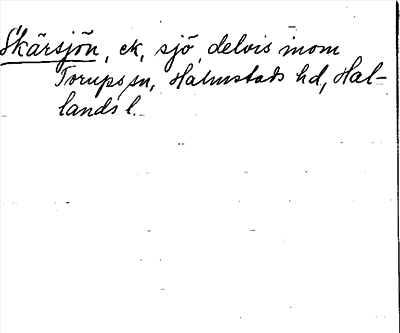 Skärsjön, ek, sjö, delvis inom
Torups sn, Halmstads hd, Hal-
lands l.